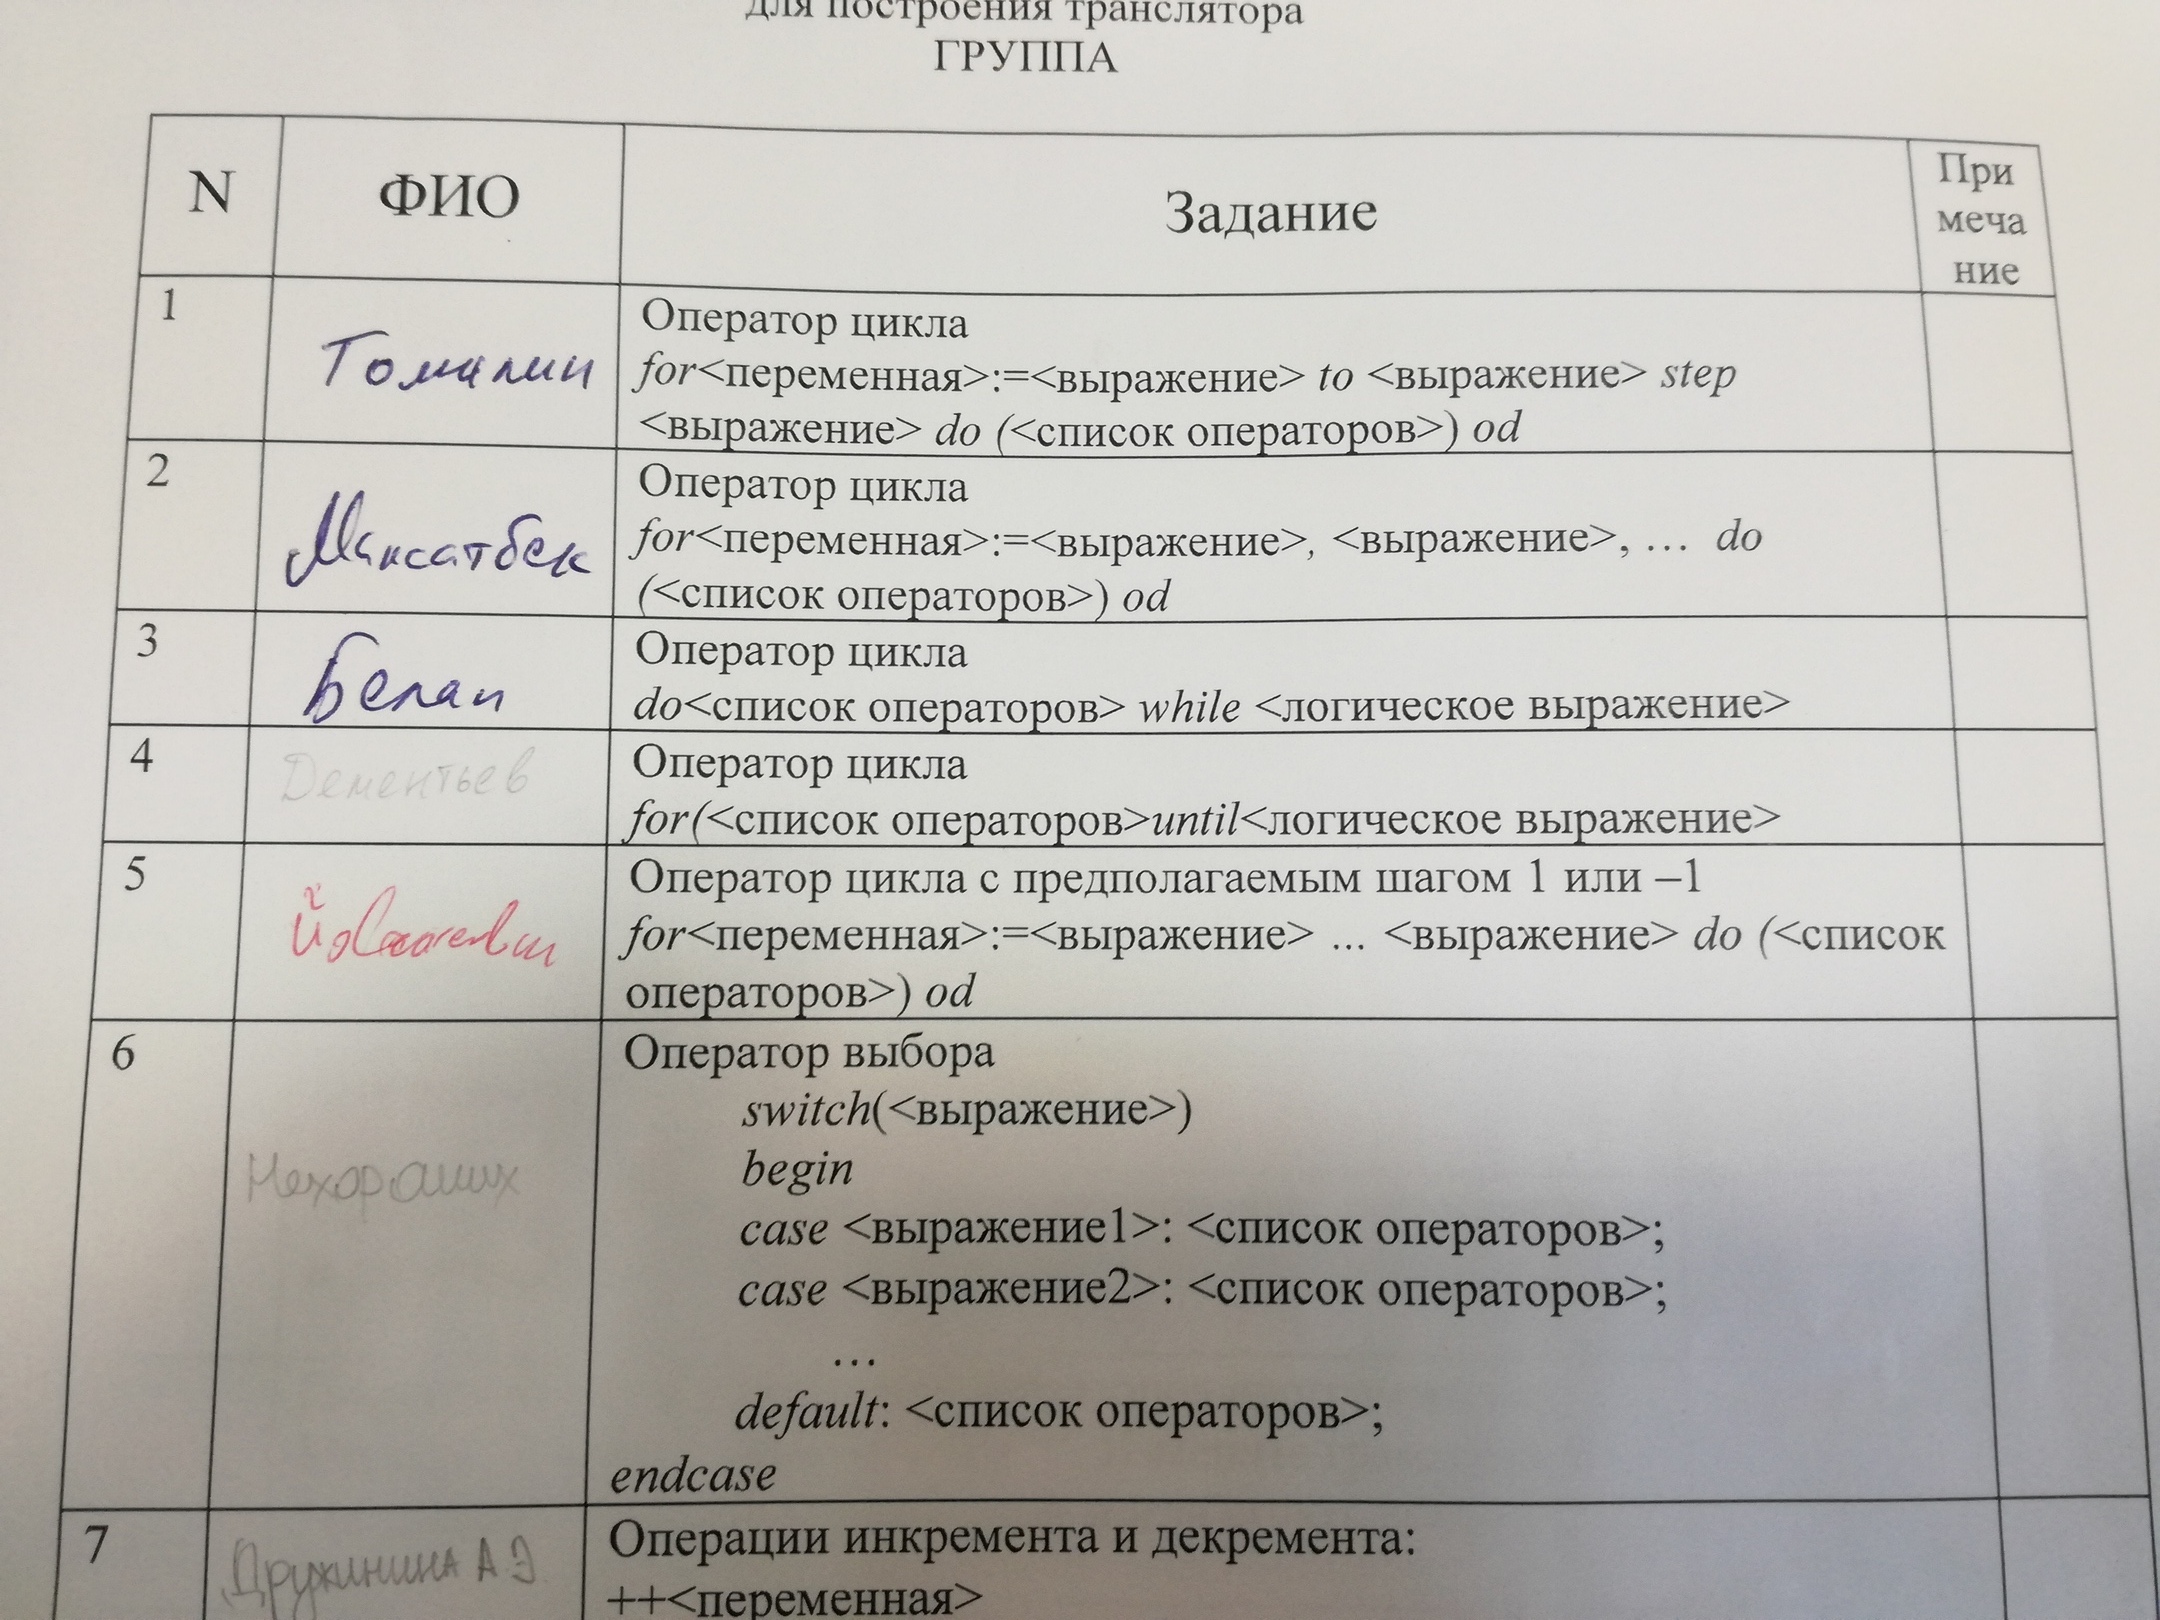 для построения транслятора
ГРУППА
N ФИО Задание При
меча
ние
1 Томилин Оператор цикла
for<переменная>:=<выражение> to <выражение> step
<выражение> do (<список операторов>) od
2 Максатбек Оператор цикла
for<переменная>:=<выражение>, <выражение>, … do
(<список операторов>) od
3 Белан Оператор цикла
do<список операторов> while <логическое выражение>
4 Дементьев Оператор цикла
for(<список операторов>until<логическое выражение>
5 Оператор цикла с предполагаемым шагом 1 или –1
for<переменная>:=<выражение> ... <выражение> do (<список
операторов>) od
6 Нехороших Оператор выбора
switch(<выражение>)
begin
case <выражение1>: <список операторов>;
case <выражение2>: <список операторов>;
…
default: <список операторов>;
endcase
7 Дружинина А.Э. Операции инкремента и декремента:
++<переменная>